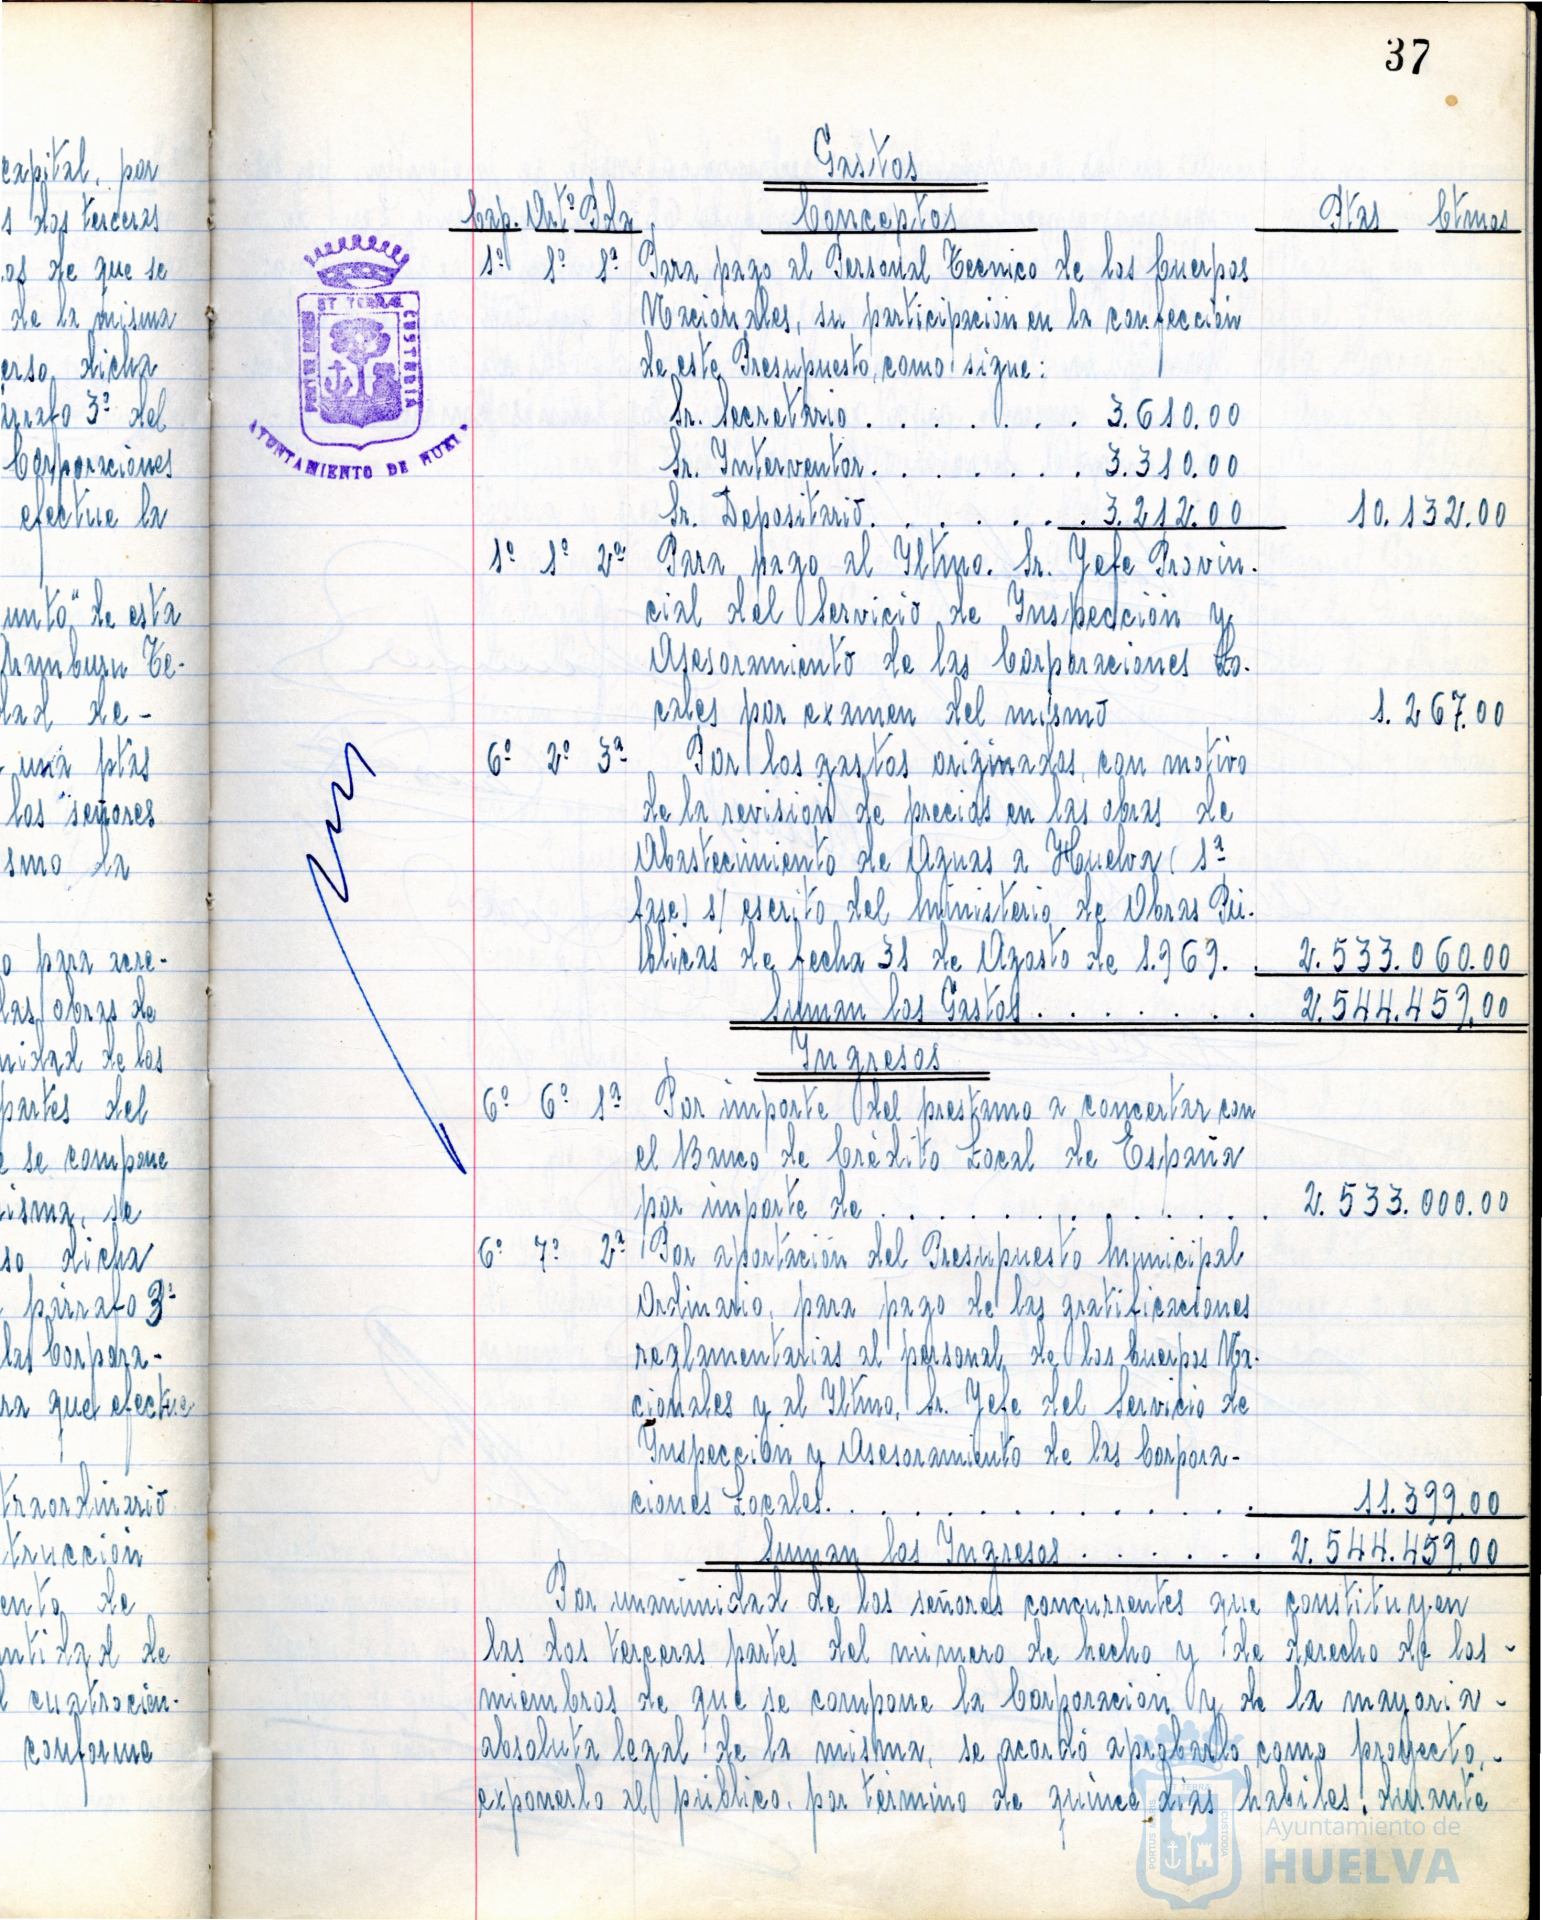 37
capital, por
s dos terceras
os de que se
de la misma
erso, dicha
árrafo 3º del
Corporaciones
efectúe la
unto" de esta
Aramburu Te-
dad de-
una ptas
los señores
smo la
o para acre-
las obras de
nidad de los
partes del
e se compone
isma, se
so dicha
párrafo 3º
las Corpora-
ra que efectúe
traordinario
trucción
ento de
ntidad de
l cuatrocien-
conforme
Gastos
Cap. Artº Pda Conceptos Ptas Ctmos
1º 1º 1ª Para pago al Personal Tecnico de los Cuerpos
Nacionales, su participación en la confección
de este Presupuesto, como sigue:
Sr. Secretario . . . . . . . 3.610.00
Sr. Interventor. . . . . . . 3.310.00
Sr. Depositario. . . . . . . 3.212.00 10.132.00
1º 1º 2ª Para pago al Iltmo. Sr. Jefe Provin-
cial del Servicio de Inspección y
Asesoramiento de las Corporaciones Lo-
cales por examen del mismo 1.267.00
6º 2º 3ª Por los gastos originados, con motivo
de la revisión de precios en las obras de
Abastecimiento de Aguas a Huelva (1ª
fase) s/ escrito del Ministerio de Obras Pú-
blicas de fecha 31 de Agosto de 1.969. . 2.533.060.00
Suman los Gastos . . . . . . . 2.544.459,00
Ingresos
6º 6º 1ª Por importe del prestamo a concertar con
el Banco de Crédito Local de España
por importe de . . . . . . . . . . . 2.533.000.00
6º 7º 2ª Por aportación del Presupuesto Municipal
Ordinario, para pago de las gratificaciones
reglamentarias al personal de los Cuerpos Na-
cionales y al Iltmo. Sr. Jefe del Servicio de
Inspección y Asesoramiento de las Corpora-
ciones Locales. . . . . . . . . . . . 11.399.00
Suman los Ingresos . . . . . . 2.544.459.00
Por unanimidad de los señores concurrentes que constituyen
las dos terceras partes del número de hecho y de derecho de los -
miembros de que se compone la Corporación y de la mayoria -
absoluta legal de la misma, se acordó aprobarlo como proyecto, -
exponerlo al público, por término de quince dias habiles, durante
ET TERRÆ
CUSTODIA
AYUNTAMIENTO DE HUEL
ET TERRÆ
PORTUS MARIS
CUSTODIA
Ayuntamiento de
HUELVA